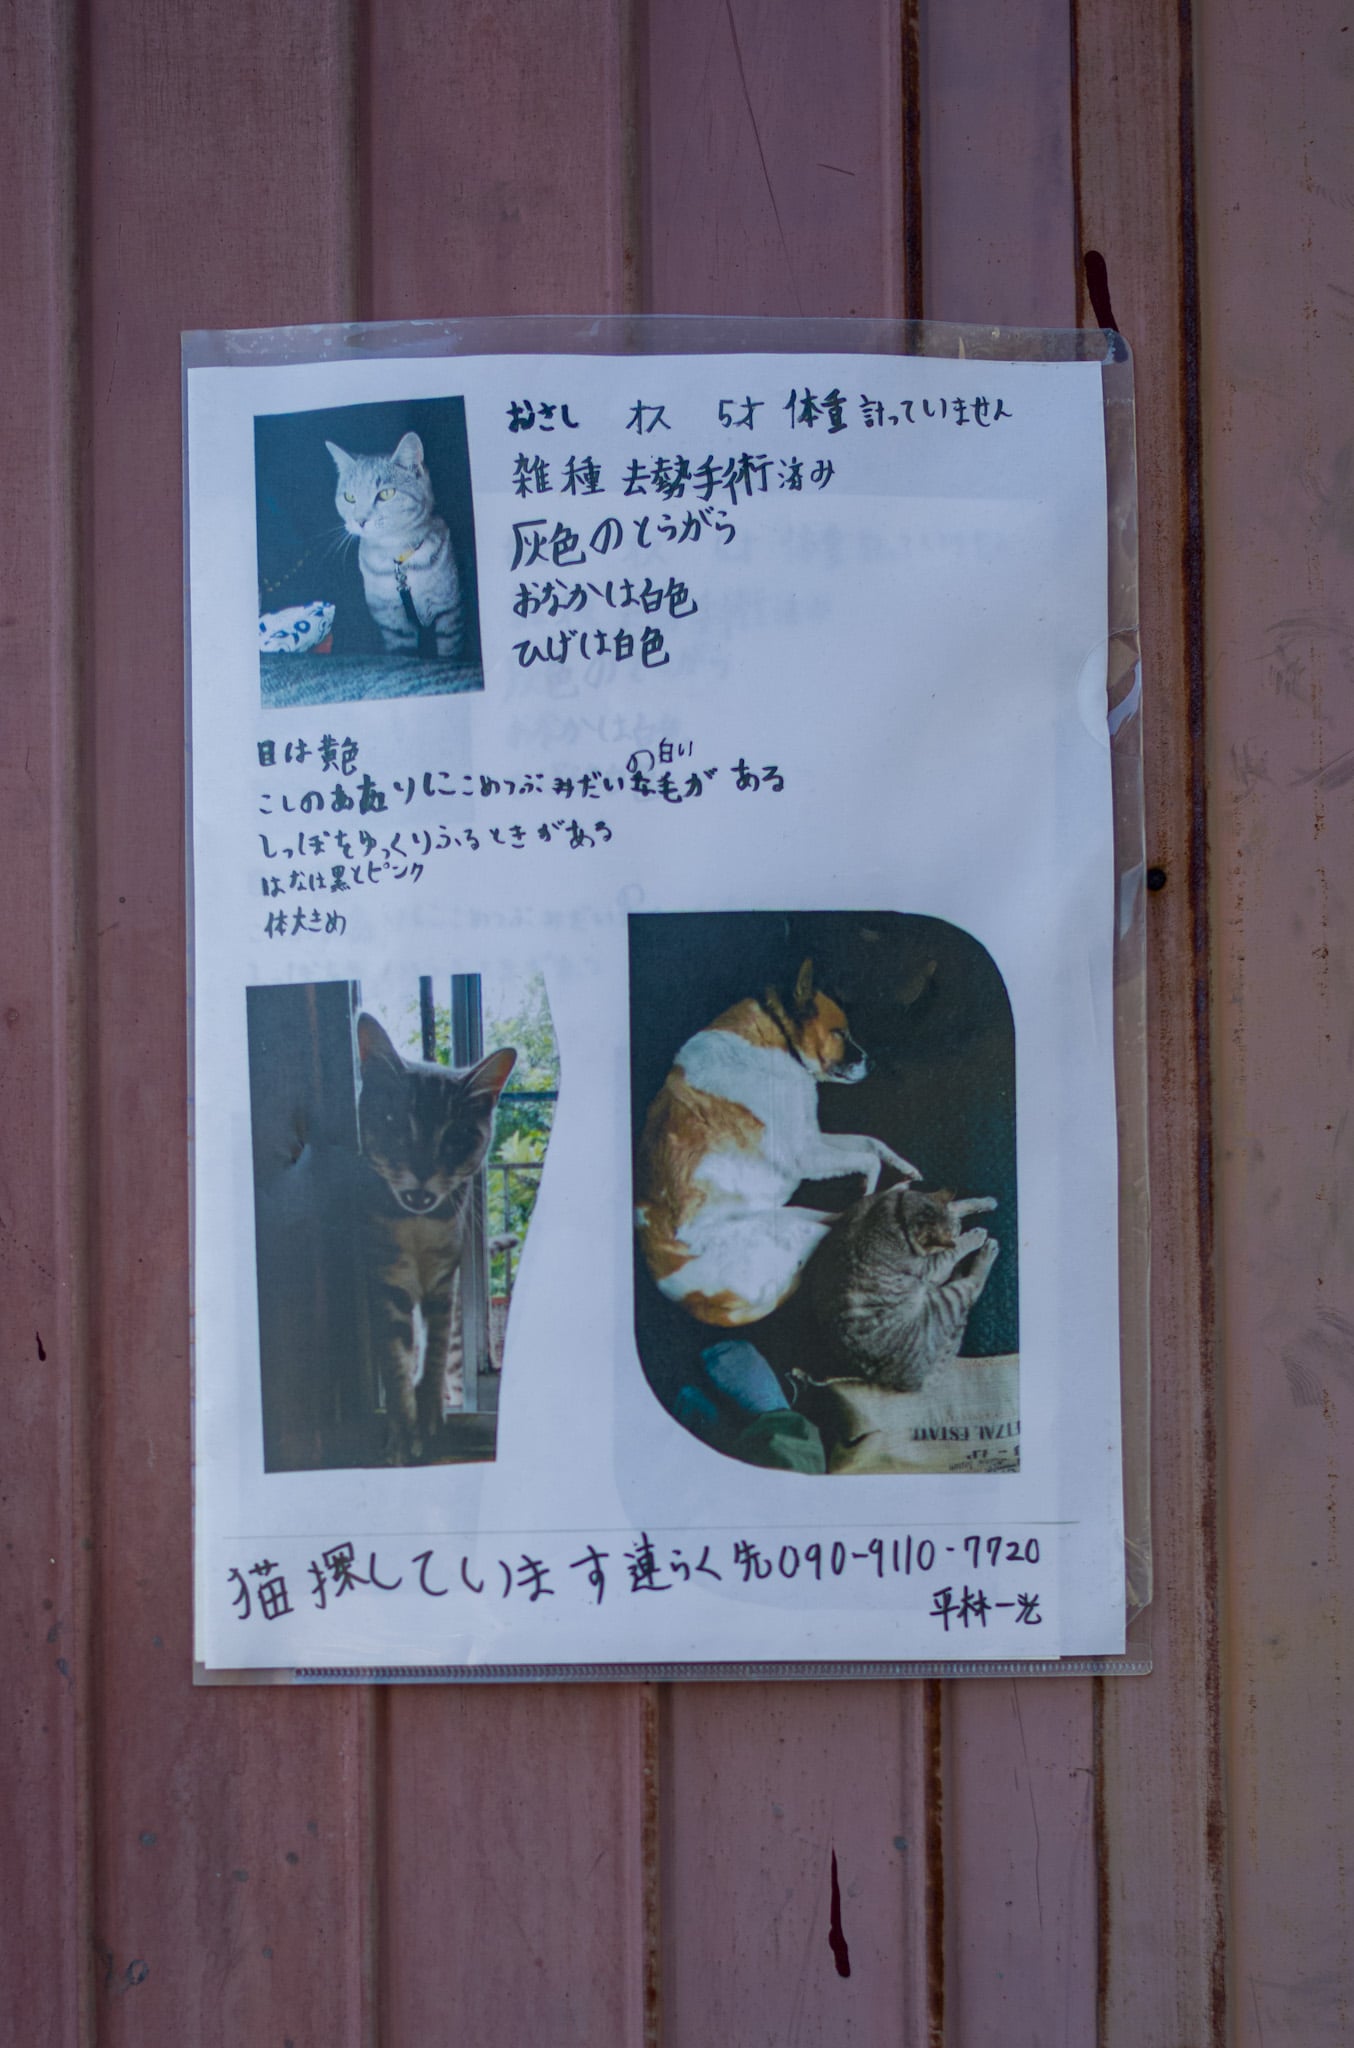 おさし オス 5才 体重計っていません
雑種 去勢手術済み
灰色のとらがら
おなかは白色
ひげは白色
目は黄色
の白い
こしのあたりにこめつぶみだいな毛がある
しっぽをゆっくりふるときがある
はなは黒とピンク
体大きめ
IZAL ESTATE
猫探しています連らく先090-9110-7720
平林一光